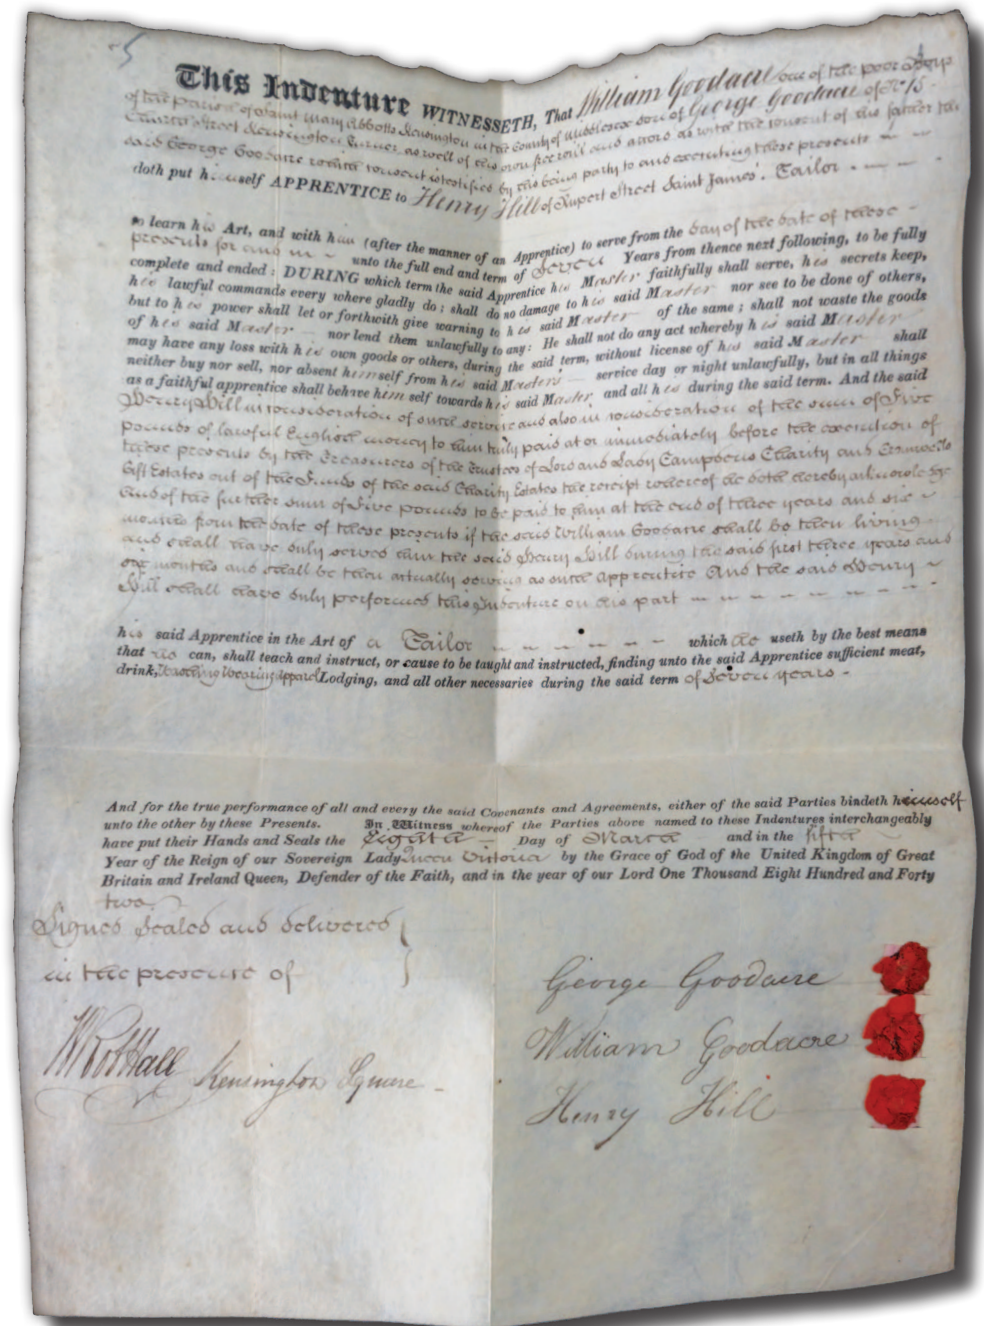 5
This Indenture WITNESSETH, That William Goodacre one of the poor Boys
of the Parish of Saint Mary Abbotts Kensington in the County of Middlesex son of George Goodacre of No 15
Street Kensington Turner as well of his own free will and accord as with the consent of his father the
said George Goodacre which consent is testified by his being party to and executing these presents
doth put himself APPRENTICE to Henry Hill of Rupert Street Saint James'. Tailor
to learn his Art, and with him (after the manner of an Apprentice) to serve from the day of the date of these
presents for and in unto the full end and term of Seven Years from thence next following, to be fully
complete and ended: DURING which term the said Apprentice his Master faithfully shall serve, his secrets keep,
his lawful commands every where gladly do; shall do no damage to his said Master nor see to be done of others,
but to his power shall let or forthwith give warning to his said Master of the same; shall not waste the goods
of his said Master nor lend them unlawfully to any: He shall not do any act whereby his said Master
may have any loss with his own goods or others, during the said term, without license of his said Master shall
neither buy nor sell, nor absent himself from his said Master's service day or night unlawfully, but in all things
as a faithful apprentice shall behave himself towards his said Master and all his during the said term. And the said
Henry Hill in consideration of such service and also in consideration of the sum of Five
pounds of lawful English money to him truly paid at or immediately before the execution of
these presents by the Treasurers of the Trustees of Lord and Lady Campden's Charity and Cromwell's
Gift Estates out of the Funds of the said Charity Estates the receipt whereof he doth hereby acknowledge
And of the further sum of Five pounds to be paid to him at the end of three years and six
months from the date of these presents if the said William Goodacre shall be then living
and shall have duly served him the said Henry Hill during the said first three years and
six months and shall be then actually serving as such Apprentice And the said Henry
Hill shall have duly performed this Indenture on his part
his said Apprentice in the Art of a Tailor which he useth by the best means
that he can, shall teach and instruct, or cause to be taught and instructed, finding unto the said Apprentice sufficient meat,
drink, Wearing Apparel Lodging, and all other necessaries during the said term of Seven years
And for the true performance of all and every the said Covenants and Agreements, either of the said Parties bindeth himself
unto the other by these Presents. In Witness whereof the Parties above named to these Indentures interchangeably
have put their Hands and Seals the Eighth Day of March and in the fifth
Year of the Reign of our Sovereign Lady Queen Victoria by the Grace of God of the United Kingdom of Great
Britain and Ireland Queen, Defender of the Faith, and in the year of our Lord One Thousand Eight Hundred and Forty
two.
Signed Sealed and delivered
in the presence of
Hall Kensington Square
George Goodacre
William Goodacre
Henry Hill